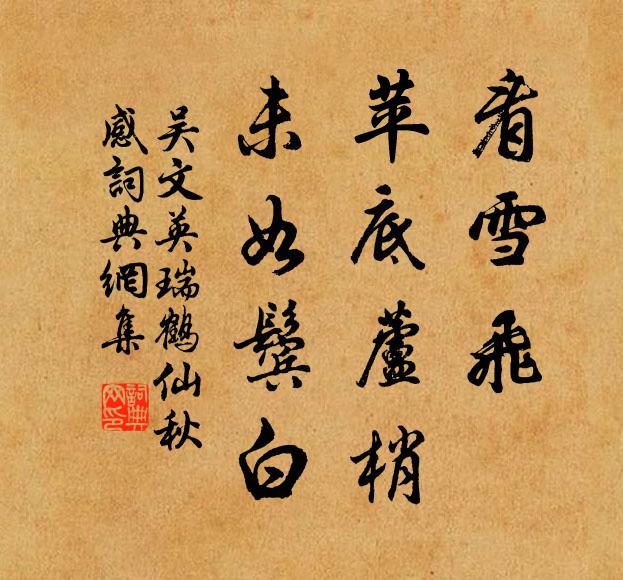 看雪飛
苹底蘆梢
未如鬢白
吴文英瑞鶴仙秋
感詞典網集
詞典网印